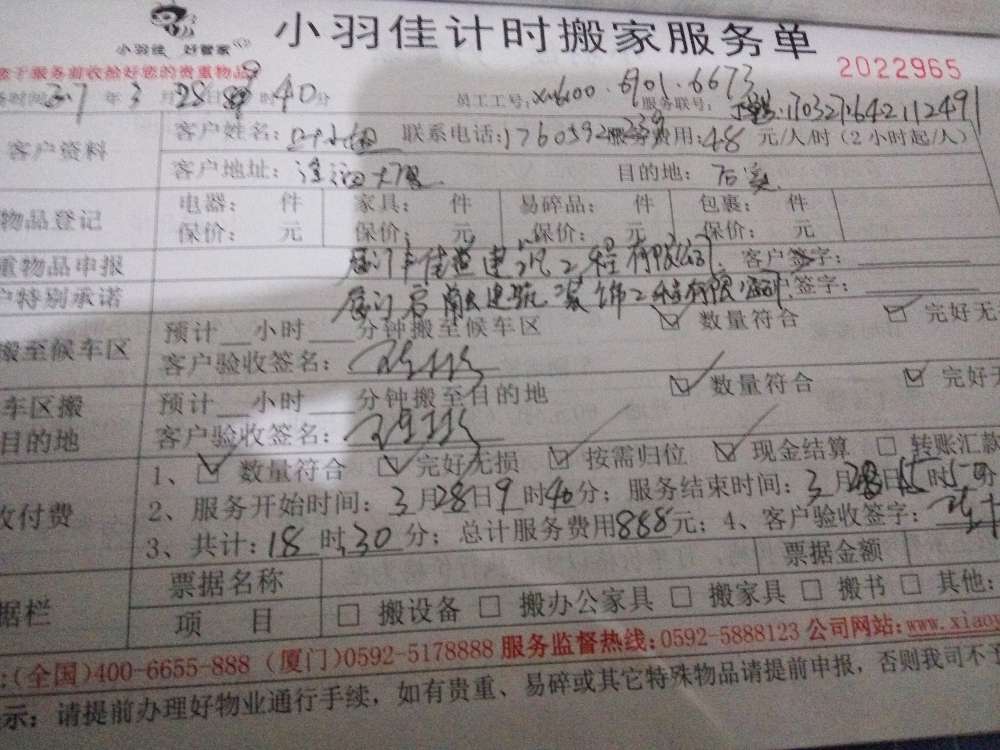 小羽佳 好管家
小羽佳计时搬家服务单
于服务前收拾好您的贵重物品
2022965
年 3 月 28 日 9 时 40 分 员工工号: 6901.6673 服务联号:
客户资料 客户姓名: 联系电话: 服务费用: 48 元/人/时 (2小时起/人)
客户地址: 目的地: 后溪
物品登记 电器: 件 家具: 件 易碎品: 件 包裹: 件
保价: 元 保价: 元 保价: 元 保价: 元
重物品申报 厦门 佳 建筑工程有限公司 客户签字:
户特别承诺 厦门启 建筑装饰工程有限公司 签字:
搬至候车区 预计 小时 分钟搬至候车区 数量符合 完好无
客户验收签名:
车区搬 预计 小时 分钟搬至目的地 数量符合 完好无
目的地 客户验收签名:
收付费 1、 数量符合 完好无损 按需归位 现金结算 转账汇款
2、服务开始时间: 3 月 28 日 9 时 40 分; 服务结束时间: 3 月 28 日 15 时 50 分
3、共计: 18 时 30 分; 总计服务费用 888 元; 4、客户验收签字:
据栏 票据名称 票据金额
项 目 搬设备 搬办公家具 搬家具 搬书 其他:
:(全国)400-6655-888 (厦门)0592-5178888 服务监督热线:0592-5888123 公司网站:www.xiaoy
示: 请提前办理好物业通行手续, 如有贵重、易碎或其它特殊物品请提前申报, 否则我司不